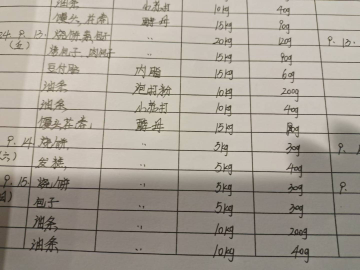 油条 小苏打 10kg 40g
馒头,花卷 酵母 15kg 80g
24. 9. 13. 烧饼 〃 20kg 120g 9. 13.
(五) 〃 15kg 90g
内酯 15kg 60g
油条 泡打粉 10kg 200g
油条 小苏打 10kg 40g
馒头花卷 酵母 15kg 80g
9. 14 烧饼 〃 5kg 30g 9.
(六) 发糕 〃 5kg 40g
9. 15. 烧饼 〃 5kg 30g 9.
包子 〃 5kg 30g
油条 〃 10kg 200g
油条 〃 10kg 40g